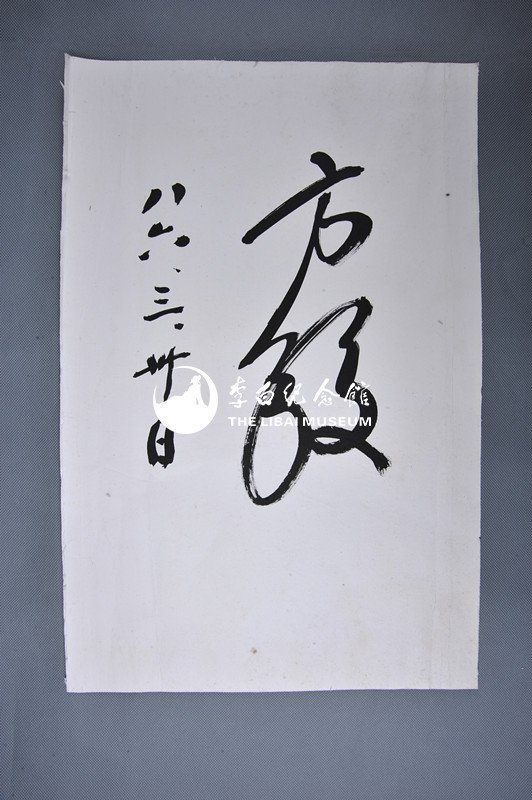 方毅
八六、三、卅日
李白纪念馆
THE LIBAI MUSEUM